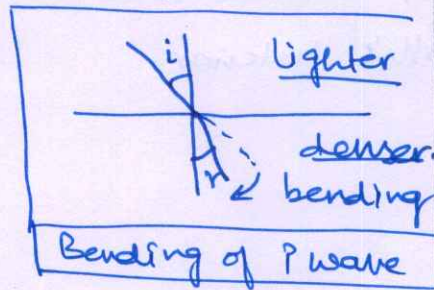 i
lighter
denser.
r
bending
Bending of P wave